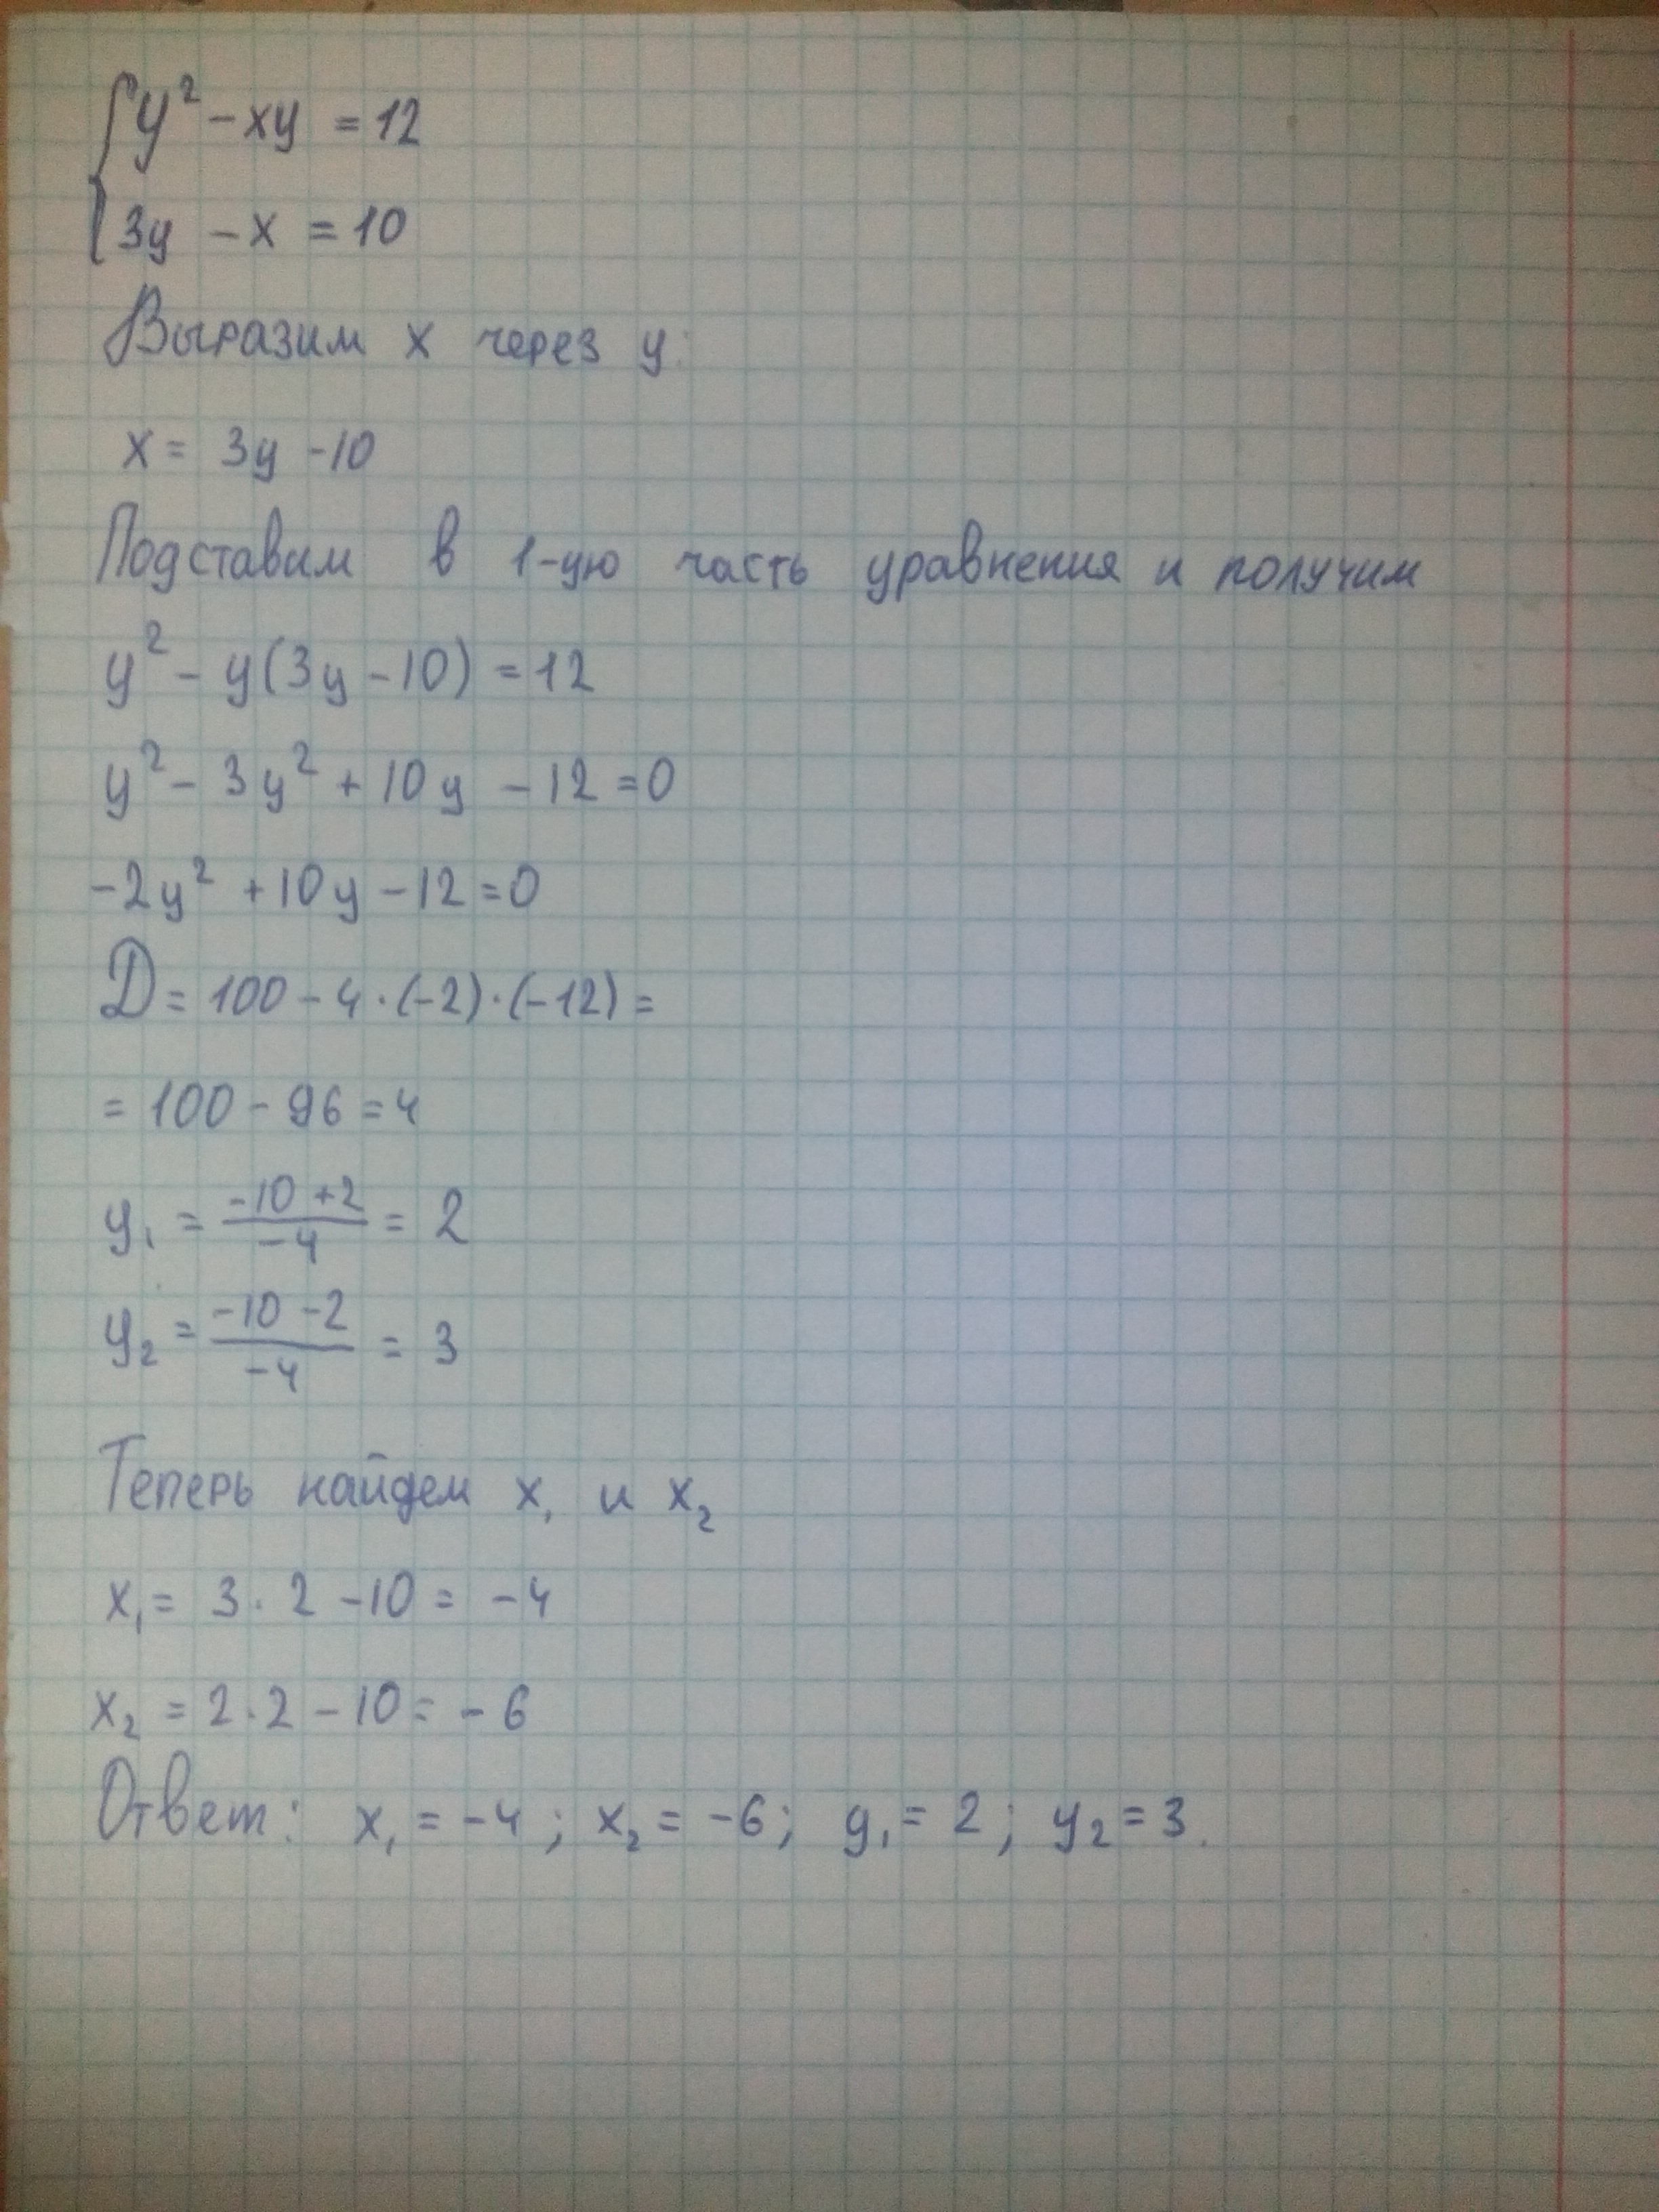 { y² - xy = 12
3y - x = 10
Выразим x через y:
x = 3y - 10
Подставим в 1-ую часть уравнения и получим
y² - y(3y - 10) = 12
y² - 3y² + 10y - 12 = 0
-2y² + 10y - 12 = 0
D = 100 - 4 · (-2) · (-12) =
= 100 - 96 = 4
y₁ = (-10 + 2)/(-4) = 2
y₂ = (-10 - 2)/(-4) = 3
Теперь найдем x₁ и x₂
x₁ = 3 · 2 - 10 = -4
x₂ = 2 · 2 - 10 = -6
Ответ: x₁ = -4; x₂ = -6; y₁ = 2; y₂ = 3.